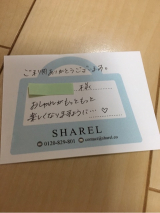 ご利用ありがとうございます。
様
おしゃれがもっともっと
楽しくなりますように…♡
SHAREL
0120-029-801